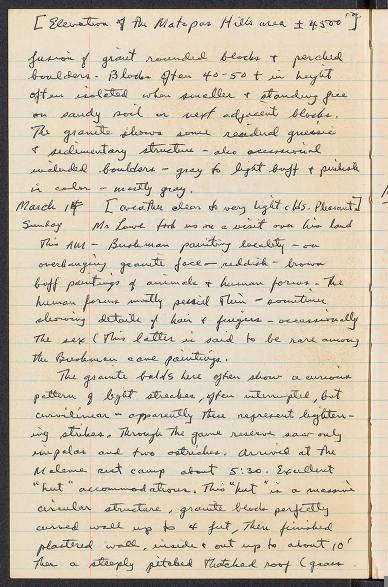 [Elevation of the Matopos Hills area ± 4500']
fusion of giant rounded blocks & perched
boulders. Blocks often 40-50 + in height
often isolated when smaller & standing free
on sandy soil or next adjacent blocks.
The granite shows some residual gneissic
& sedimentary structure - also occasional
included boulders - gray to light buff & pinkish
in color - mostly gray.
March 14 [weather clear to very light clds. Pleasant]
Sunday Mr Lowe took us on a visit over his land
this AM - Bushman painting locality - on
overhanging granite face - reddish-brown
buff paintings of animals & human forms. The
human forms mostly pencil thin - sometimes
showing details of hair & fingers - occasionally
the sex (This latter is said to be rare among
the Bushman cave paintings.
The granite balds here often show a curious
pattern of light streaks, often interrupted, but
curvilinear - apparently these represent lighten-
ing strikes. Through the game reserve saw only
impalas and two ostriches. Arrived at the
Maleme rest camp about 5:30. Excellent
"hut" accommodations. This "hut" is a massive
circular structure, granite blocks perfectly
curved wall up to 4 feet, then finished
plastered wall, inside & out up to about 10'
then a steeply pitched thatched roof (grass